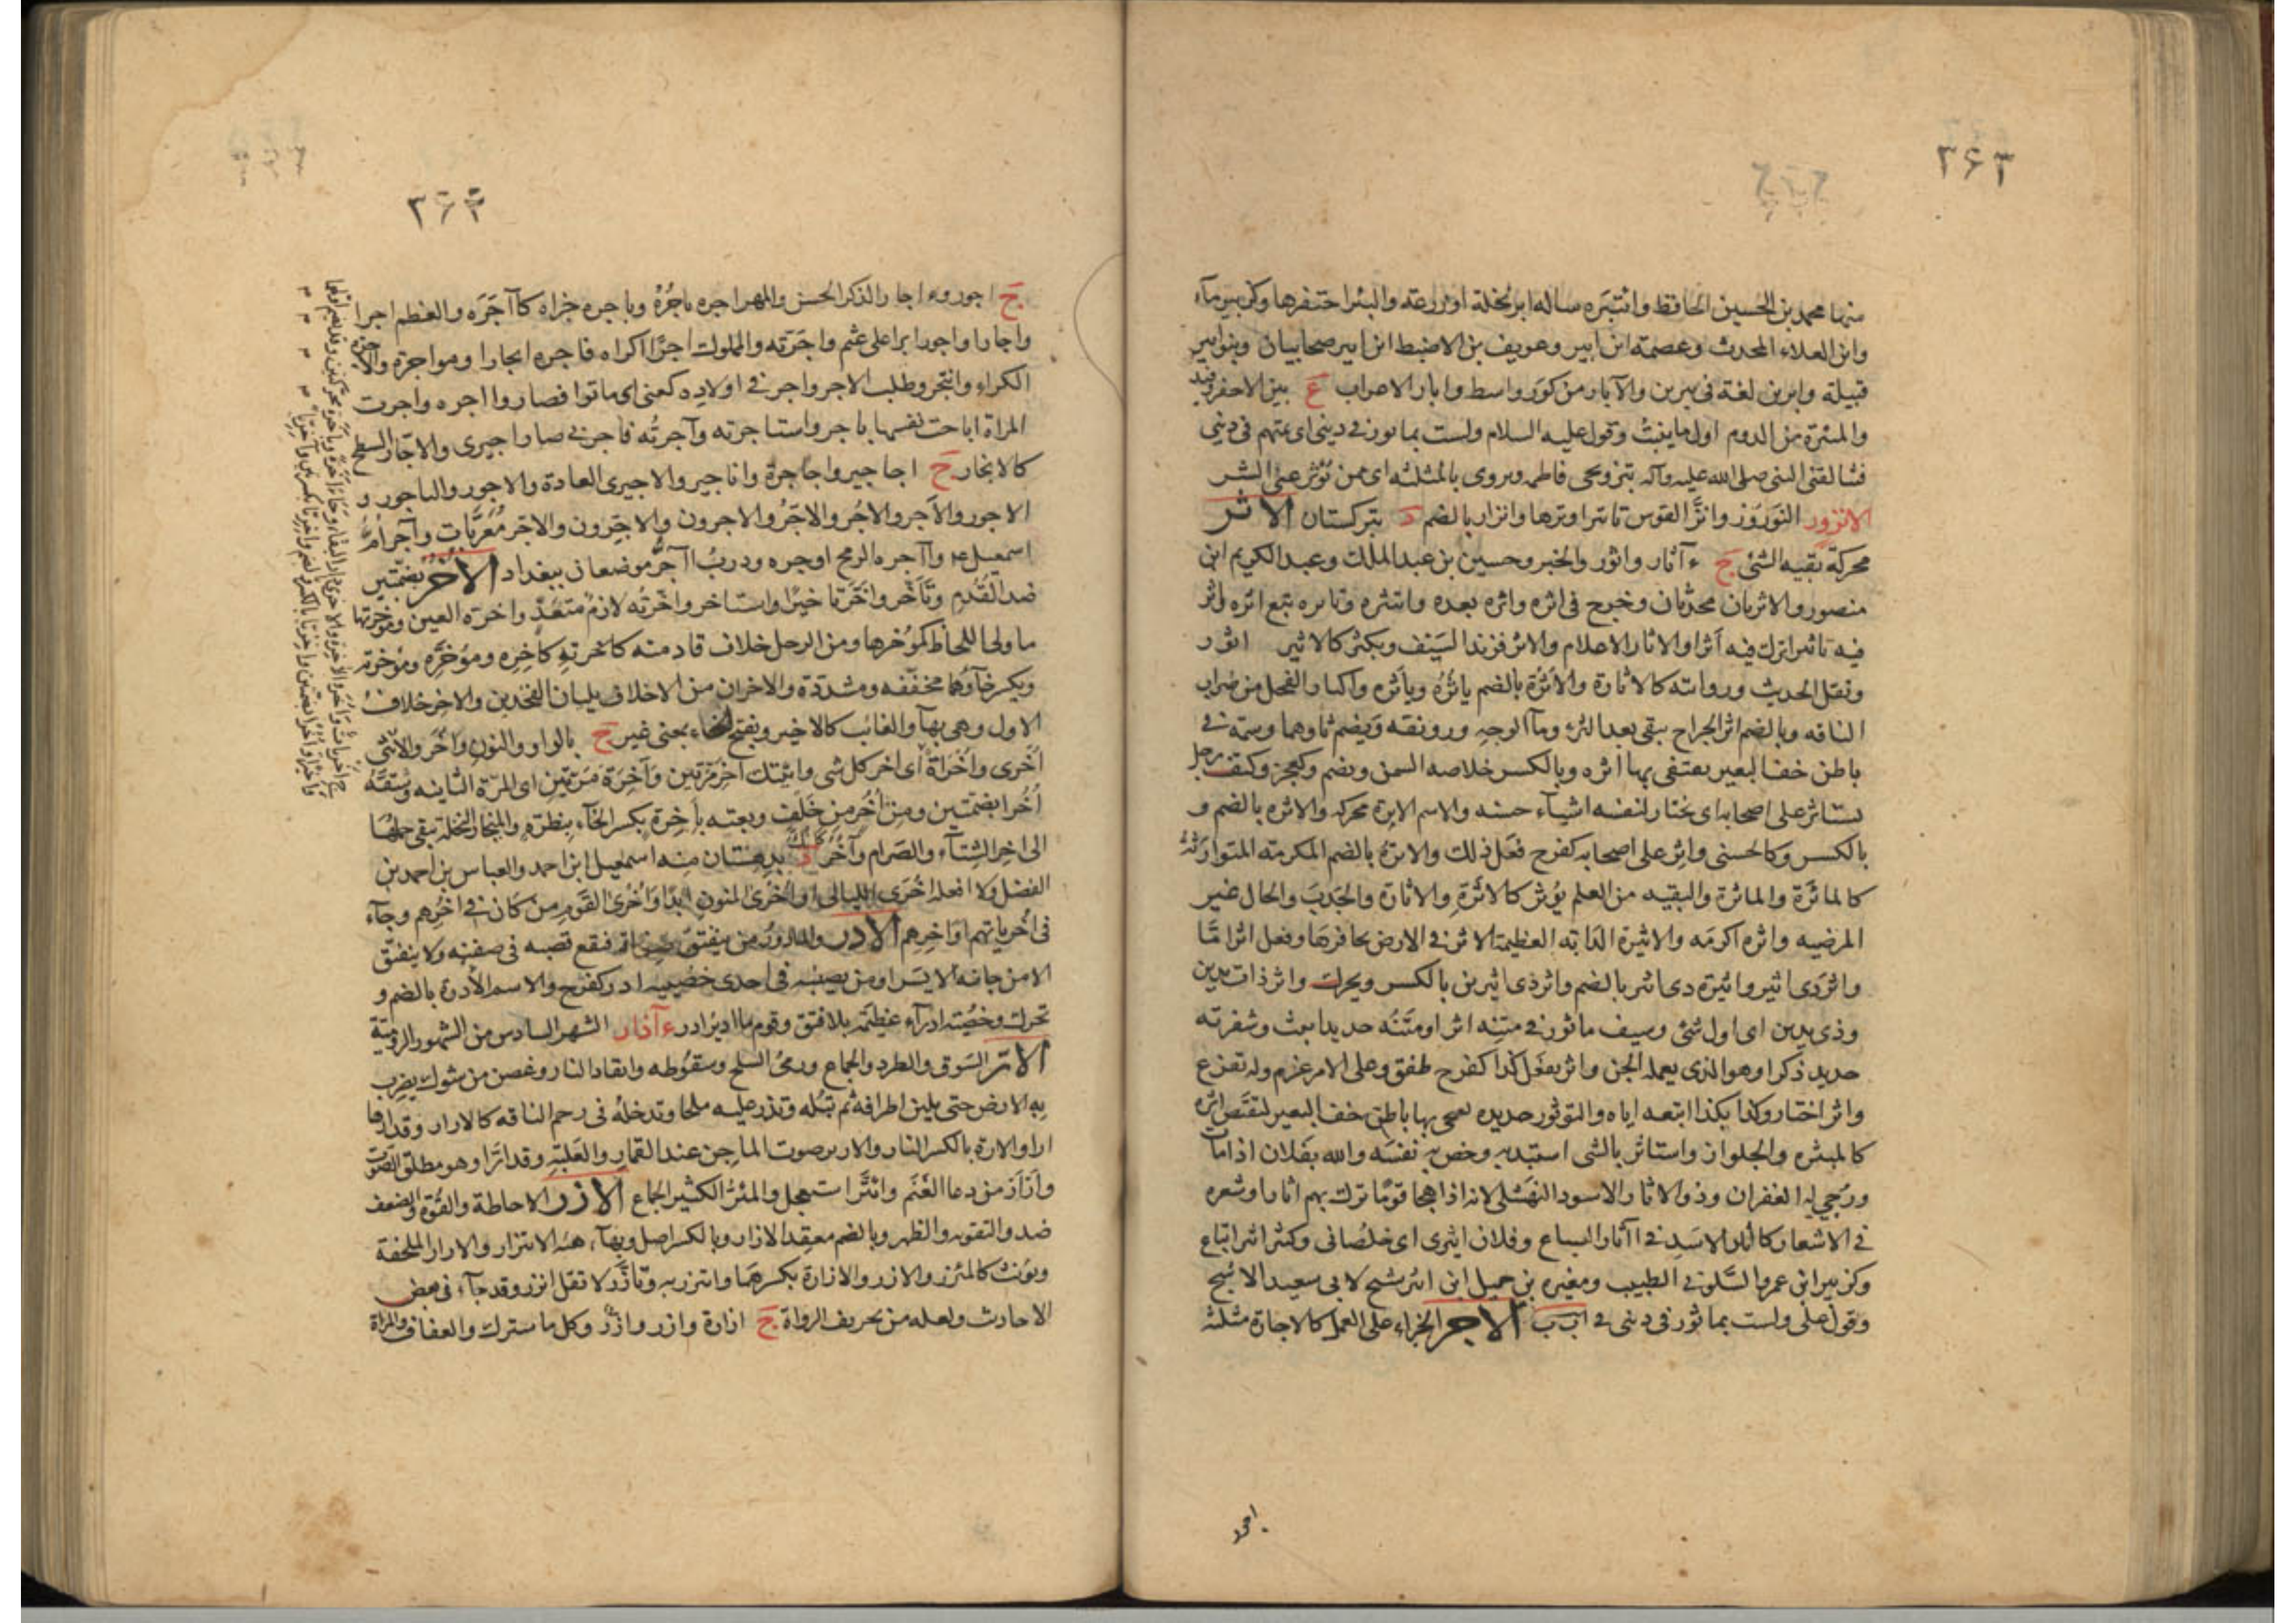 ٣۶٣
منها محمد بن الحسين الحافظ وائتبره ساله ابر نخلة او زرعته والبئر احتفرها وكزبير ماء
وابن العلاء المحدث وعصمة ابن ابير وعويف بن الاضبط ابن ابير صحابيان وبنو ابير
قبيلة وابرين لغة فى يبرين والآبار من كور واسط وابار الاعراب ع بين الاجفر وفيد
والمئبرة من الدوم اول ماينبت وقول عليه السلام ولست بمابور فى دينى اى بمتهم فى دينى
فيتالفنى النبى صلى الله عليه وآله بتزويجى فاطمه ويروى بالمثلثه اى ممن يؤثر عنى الشر
الاترور النورور واتر القوس تاتيرا وترها واترار بالضم د بتركستان الاثر
محركة بقيه الشئ ج ء آثار واثور والخبر وحسين بن عبد الملك وعبد الكريم ابن
منصور والاثريان محدثان وخرج فى اثره واثره بعده وائتثره وتاثره تبع اثره واثر
فيه تاثيرا ترك فيه اثرا والاثار الاعلام والاثر فرند السيف ويكثر كالاثير اثور
ونقل الحديث وروايته كالاثارة والأثرة بالضم ياثره وياثره واكثار الفحل من ضراب
الناقه وبالضم اثر الجراح يبقى بعد البرء وماء الوجه ورونقه ويضم ثاوهما وسمة فى
باطن خف البعير يقتفى بها اثره وبالكسر خلاصه السمن ويضم وكعجز وكتف رجل
يستاثر على اصحابه اى يختار لنفسه اشياء حسنه والاسم الاثرة محركه والاثره بالضم و
بالكسر وكالحسنى واثر على اصحابه كفرح فعل ذلك والاثرة بالضم المكرمه المتوارثة
كالماثَرة والماثرة والبقيه من العلم يؤثر كالاثرة والاثارة والجدب والحال غير
المرضيه واثره اكرمه والاثيرة الدابه العظيمة الاثر فى الارض بحافرها وفعل اثرا ما
واثر ذى اثير واثيرة ذى اثير بالضم واثر ذى اثيرين بالكسر ويحرك واثر ذات يدين
وذى يدين اى اول شئ وسيف ماثور فى متنه اثر او متنه حديد انيث وشفرته
حديد ذكر او هو الذى يعمله الجن واثر يفعل كذا كفرح طفق وعلى الامر عزم وله تفرغ
واثر اختار وكذا بكذا اتبعه اياه والتوثور حديده يسحى بها باطن خف البعير ليقتص اثره
كالمئثره والجلواز واستاثر بالشى استبد به وخص به نفسه والله بفلان اذا مات
ورجى له الغفران وذو الاثار الاسود النهشلى لانه اذا هجا قوما ترك بهم اثارا وشعره
فى الاشعار كاثار الاسد فى آثار السباع وفلان اثيرى اى خلصانى وكثر اثر اتباع
وكزبير ابن عمرو السكونى الطبيب ومغيره بن جميل ابن اثير شيخ لابى سعيد الاشج
وقول على ولست بماثور فى دينى فى اب ب الاجر الجزاء على العمل كالاجارة مثلثه
اجور
٣۶٤
ج اجور واجار والذكر الحسن والمهر اجره ياجُرُه وياجره جزاه كآجَرَه والعظم اجرا
واجارا واجورا برا على عثم واجرته والمملوك اجرًا اكراه فاجره ايجارا ومواجرة والاجرة
الكراء وائتجر وطلب الاجر واجر فى اولاده كعنى اى ماتوا فصاروا اجره واجرت
المراة اباحت نفسها باجر واستاجرته وآجرتُه فاجرنى صار اجيرى والاجّار السطح
كالانجار ج اجاجير واجاجرة واناجير والاجيرى العادة والاجور والياجور و
الاجور والآجر والاجُر والاجَرُ والاجرون والاجِرون والاجر مُعَرَّبات وآجر امّ
اسمعيل ع وآجره الرمح اوجره ودربُ آجُر موضعان ببغداد الاُخُر بضمّتين
ضد القُدُم وتأخّر واخّر تاخيرًا واستاخر واخّرتُه لازمٌ متعدٍّ واخرة العين ومؤخرتها
ما ولى اللحاظ كمؤخرها ومن الرحل خلاف قادمته كاخرته كاخِره ومؤخّره ومؤخرته
ويكسر خآؤهما مخففه ومشددة والاخران من الاخلاف يليان الفخذين والاخر خلاف
الاول وهى بهآ والغائب كالاخير وبفتح الخاء بمعنى غير ج بالواو والنون واُخَر والانثى
اُخرى واُخراة اى اخر كل شى واتيتك آخر مرّتين وآخِرَة مَرّتين اى المرّة الثانيه وشقّهُ
اُخُرا بضمتين ومن اُخُر من خَلْف وبعته باَخِرة بكسر الخآء بنظرة والمئخار النخلة يبقى حملها
الى اخر الشتآء والصرام وآخُر كآنُك د بدهستان منه اسمعيل ابن احمد والعباس بن احمد بن
الفضل ولا افعله اُخرى الليالى او اُخرى المنون ابدًا واُخرى القوم من كان فى اخُرِهم وجآء
فى اُخرياتهم اواخِرِهم الادر والمادور من ينفتق صفاقه فيقع قصبه فى صفنه ولا ينفتق
الا من جانبه الايسر او من يصيبه فى احدى خصييه ادر كفرح والاسم الأدرة بالضم و
تحرك وخصيته ادرآء عظيمة بلا فتق وقوم ما ادير ادر ء آذار الشهر السادس من الشهور الروميّة
الارّ السَوق والطرد والجماع ورمى السلح وسقوطه وايقاد النار وغصن من شوك يضرب
به الارض حتى يلين اطرافه ثم تبُله وتذر عليه ملحا وتدخلهُ فى رحم الناقه كالارار وقد ارها
ارا والارة بالكسر النار والارير صوت الماجن عند القمار والغلبة وقد ارّ او هو مطلق الصوت
وأرَأر من دعا الغنم وائترّ استعجل والمئرّ الكثير الجماع الازر الاحاطة والقوة والضعف
ضد والتقويه والظهر وبالضم معقد الازار وبالكسر اصل وبهآء هيئة الائتزار والازار الملحفة
ويؤنث كالمئزر والازر والازارة بكسرهما وائتزر به وتازّر لا تقل اتزر وقد جآء فى بعض
الاحاديث ولعله من تحريف الرواة ج ازارة وازر وازُر وكل ما سترك والعفاف والمراة